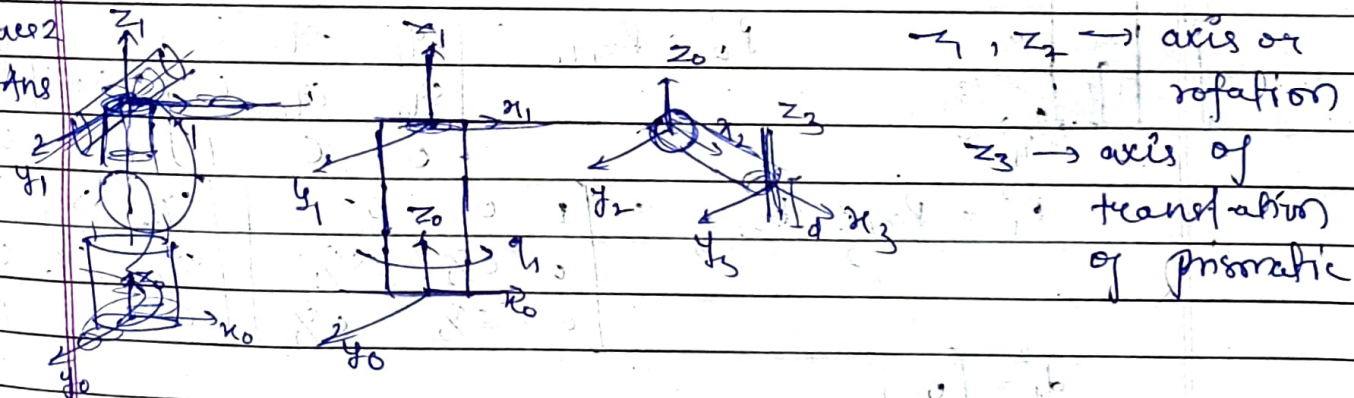 Ans
z₁
y₁
z₀
x₀
y₀
z₁
x₁
y₁
z₀
q₁
x₀
y₀
z₀
x₂
y₂
z₃
d
x₃
y₃
z₁, z₂ → axis or
rotation
z₃ → axis of
translation
of prismatic